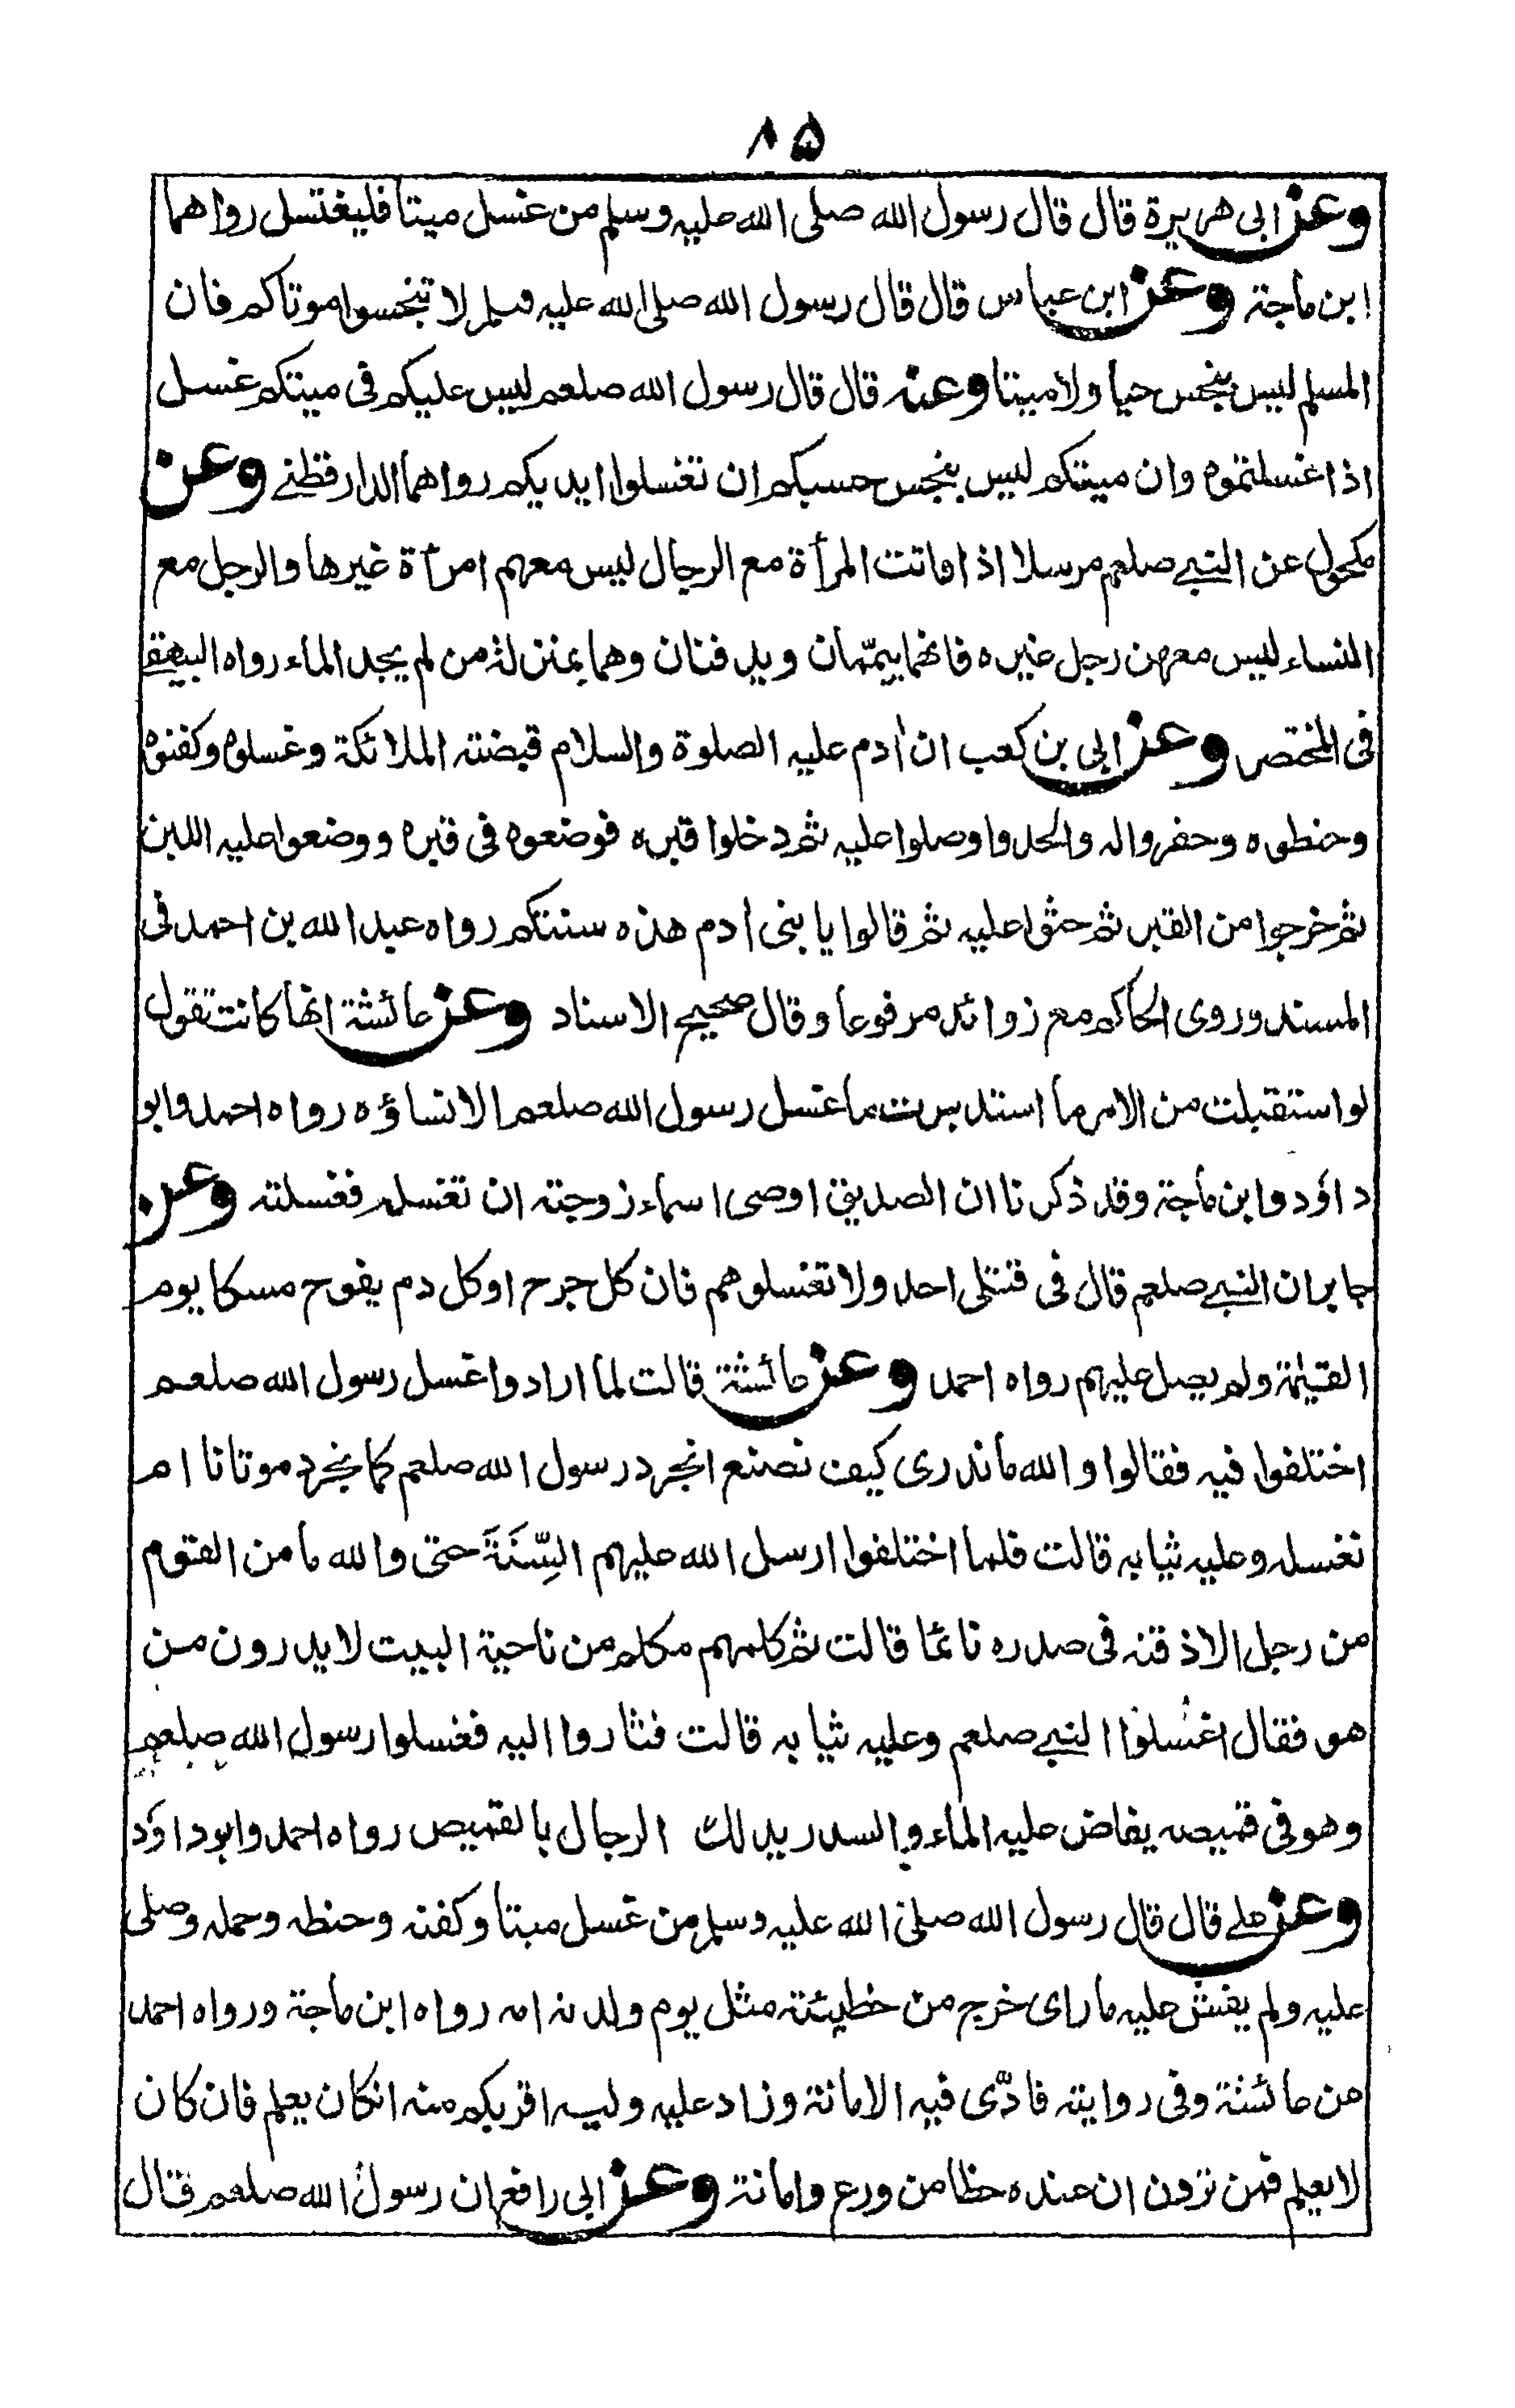 ٨٥
وعن ابى هريرة قال قال رسول الله صلى الله عليه وسلم من غسل ميتا فليغتسل رواهما
ابن ماجة وعن ابن عباس قال قال رسول الله صلى الله عليه وسلم لا تنجسوا موتاكم فان
المسلم ليس بنجس حيا ولا ميتا وعنه قال قال رسول الله صلعم ليس عليكم فى ميتكم غسل
اذا غسلتموه وان ميتكم ليس بنجس حسبكم ان تغسلوا ايديكم رواهما الدارقطنے وعن
مكحول عن النبے صلعم مرسلا اذا ماتت المرأة مع الرجال ليس معهم امرأة غيرها والرجل مع
النساء ليس معهن رجل غيره فانهما ييمّمان ويدفنان وهما بمنزلة من لم يجد الماء رواه البيهقے
فى المختصر وعن ابى بن كعب ان ادم عليه الصلوة والسلام قبضته الملائكة وغسلوه وكفنوه
وحنطوه وحفروا له والحدوا وصلوا عليه ثم دخلوا قبره فوضعوه فى قبره ووضعوا عليه اللبن
ثم خرجوا من القبر ثم حثوا عليه ثم قالوا يا بنى ادم هذه سنتكم رواه عبد الله بن احمد فى
المسند وروى الحاكم مع زوائد مرفوعا وقال صحيح الاسناد وعن عائشة انها كانت تقول
لو استقبلت من الامر ما استدبرت ما غسل رسول الله صلعم الا نساؤه رواه احمد وابو
داؤد وابن ماجة وقد ذكرنا ان الصديق اوصى اسماء زوجته ان تغسله فغسلته وعن
جابر ان النبے صلعم قال فى قتلى احد ولا تغسلوهم فان كل جرح او كل دم يفوح مسكا يوم
القيٰمة ولم يصل عليهم رواه احمد وعن عائشة قالت لما ارادوا غسل رسول الله صلعم
اختلفوا فيه فقالوا والله ما ندرى كيف نصنع انجرد رسول الله صلعم كما نجرد موتانا ام
نغسله وعليه ثيابه قالت فلما اختلفوا ارسل الله عليهم السِّنَةَ حتى والله ما من القوم
من رجل الا ذقنه فى صدره نائما قالت ثم كلمهم مكلم من ناحية البيت لا يدرون من
هو فقال اغسلوا النبے صلعم وعليه ثيابه قالت فثاروا اليه فغسلوا رسول الله صلعم
وهو فى قميصه يفاض عليه الماء والسدر يدلك الرجال بالقميص رواه احمد وابو داؤد
وعن علے قال قال رسول الله صلى الله عليه وسلم من غسل ميتا وكفنه وحنطه وحمله وصلى
عليه ولم يفش عليه ما راى خرج من خطيئته مثل يوم ولدته امه رواه ابن ماجة ورواه احمد
عن عائشة وفى روايته فادّى فيه الامانة وزاد عليه وليه اقربكم منه ان كان يعلم فان كان
لا يعلم فمن ترون ان عنده حظا من ورع وامانة وعن ابى رافع ان رسول الله صلعم قال